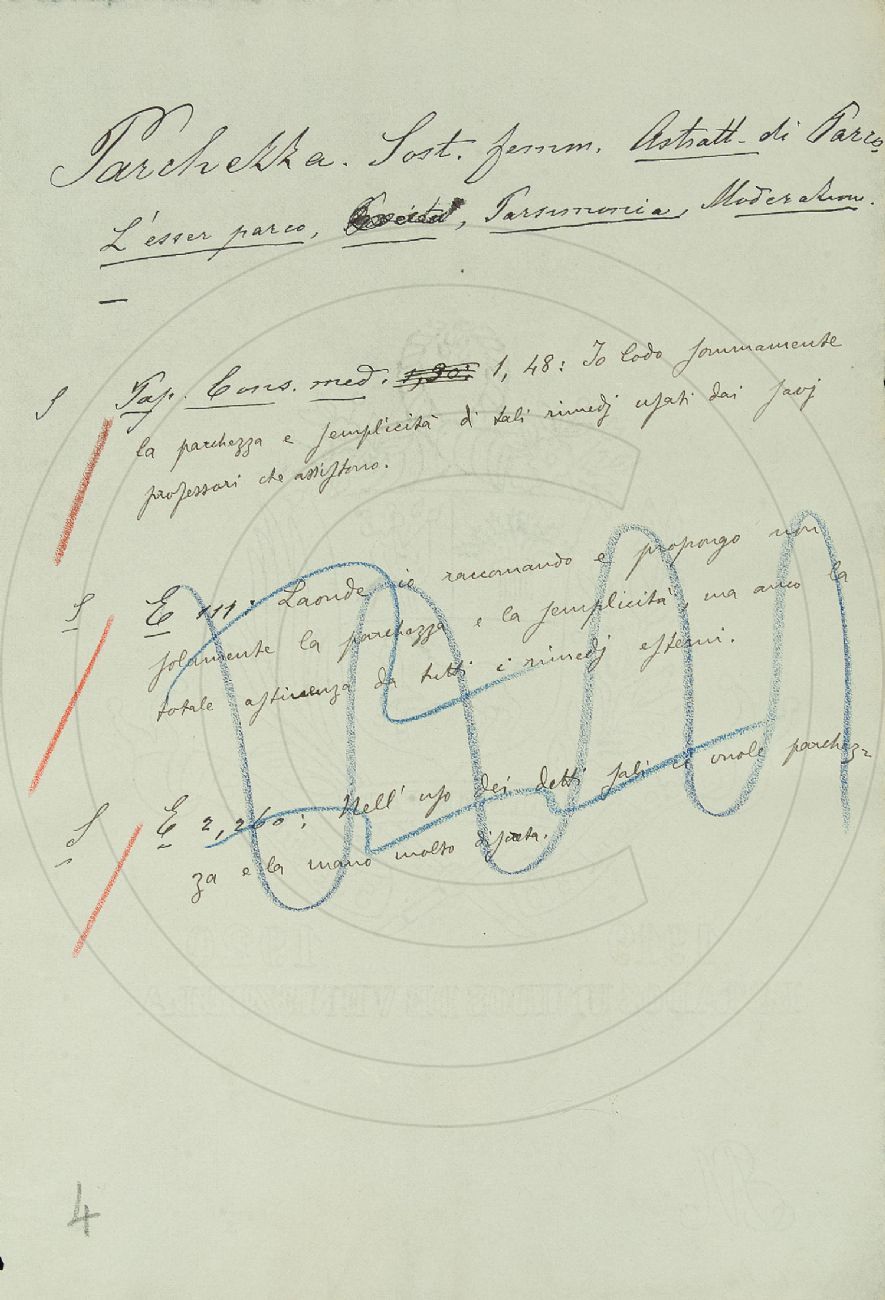 Parchezza. Sost. femm. Astratt. di Parco,
L'esser parco, Parsimonia, Moderazion.
—
S Pap. Cons. med. 1,20: 1, 48: Io lodo sommamente
la parchezza e semplicità di tali rimedj usati dai savj
professori che assistono.
S E 111: Laonde io raccomando e propongo non
solamente la parchezza e la semplicità, ma anco la
totale astinenza da tutti i rimedj esterni.
S E 2, 260: Nell' uso dei detti sali ci vuole parchez=
za e la mano molto discreta.
4